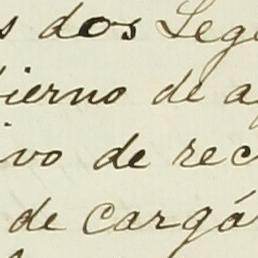 s dos Lega
bierno de a
ivo de rec
de cargá